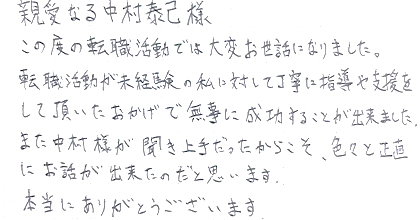 親愛なる中村泰己様
この度の転職活動では大変お世話になりました。
転職活動が未経験の私に対して丁寧に指導や支援を
して頂いたおかげで無事に成功することが出来ました。
また中村様が聞き上手だったからこそ、色々と正直
にお話が出来たのだと思います。
本当にありがとうございます